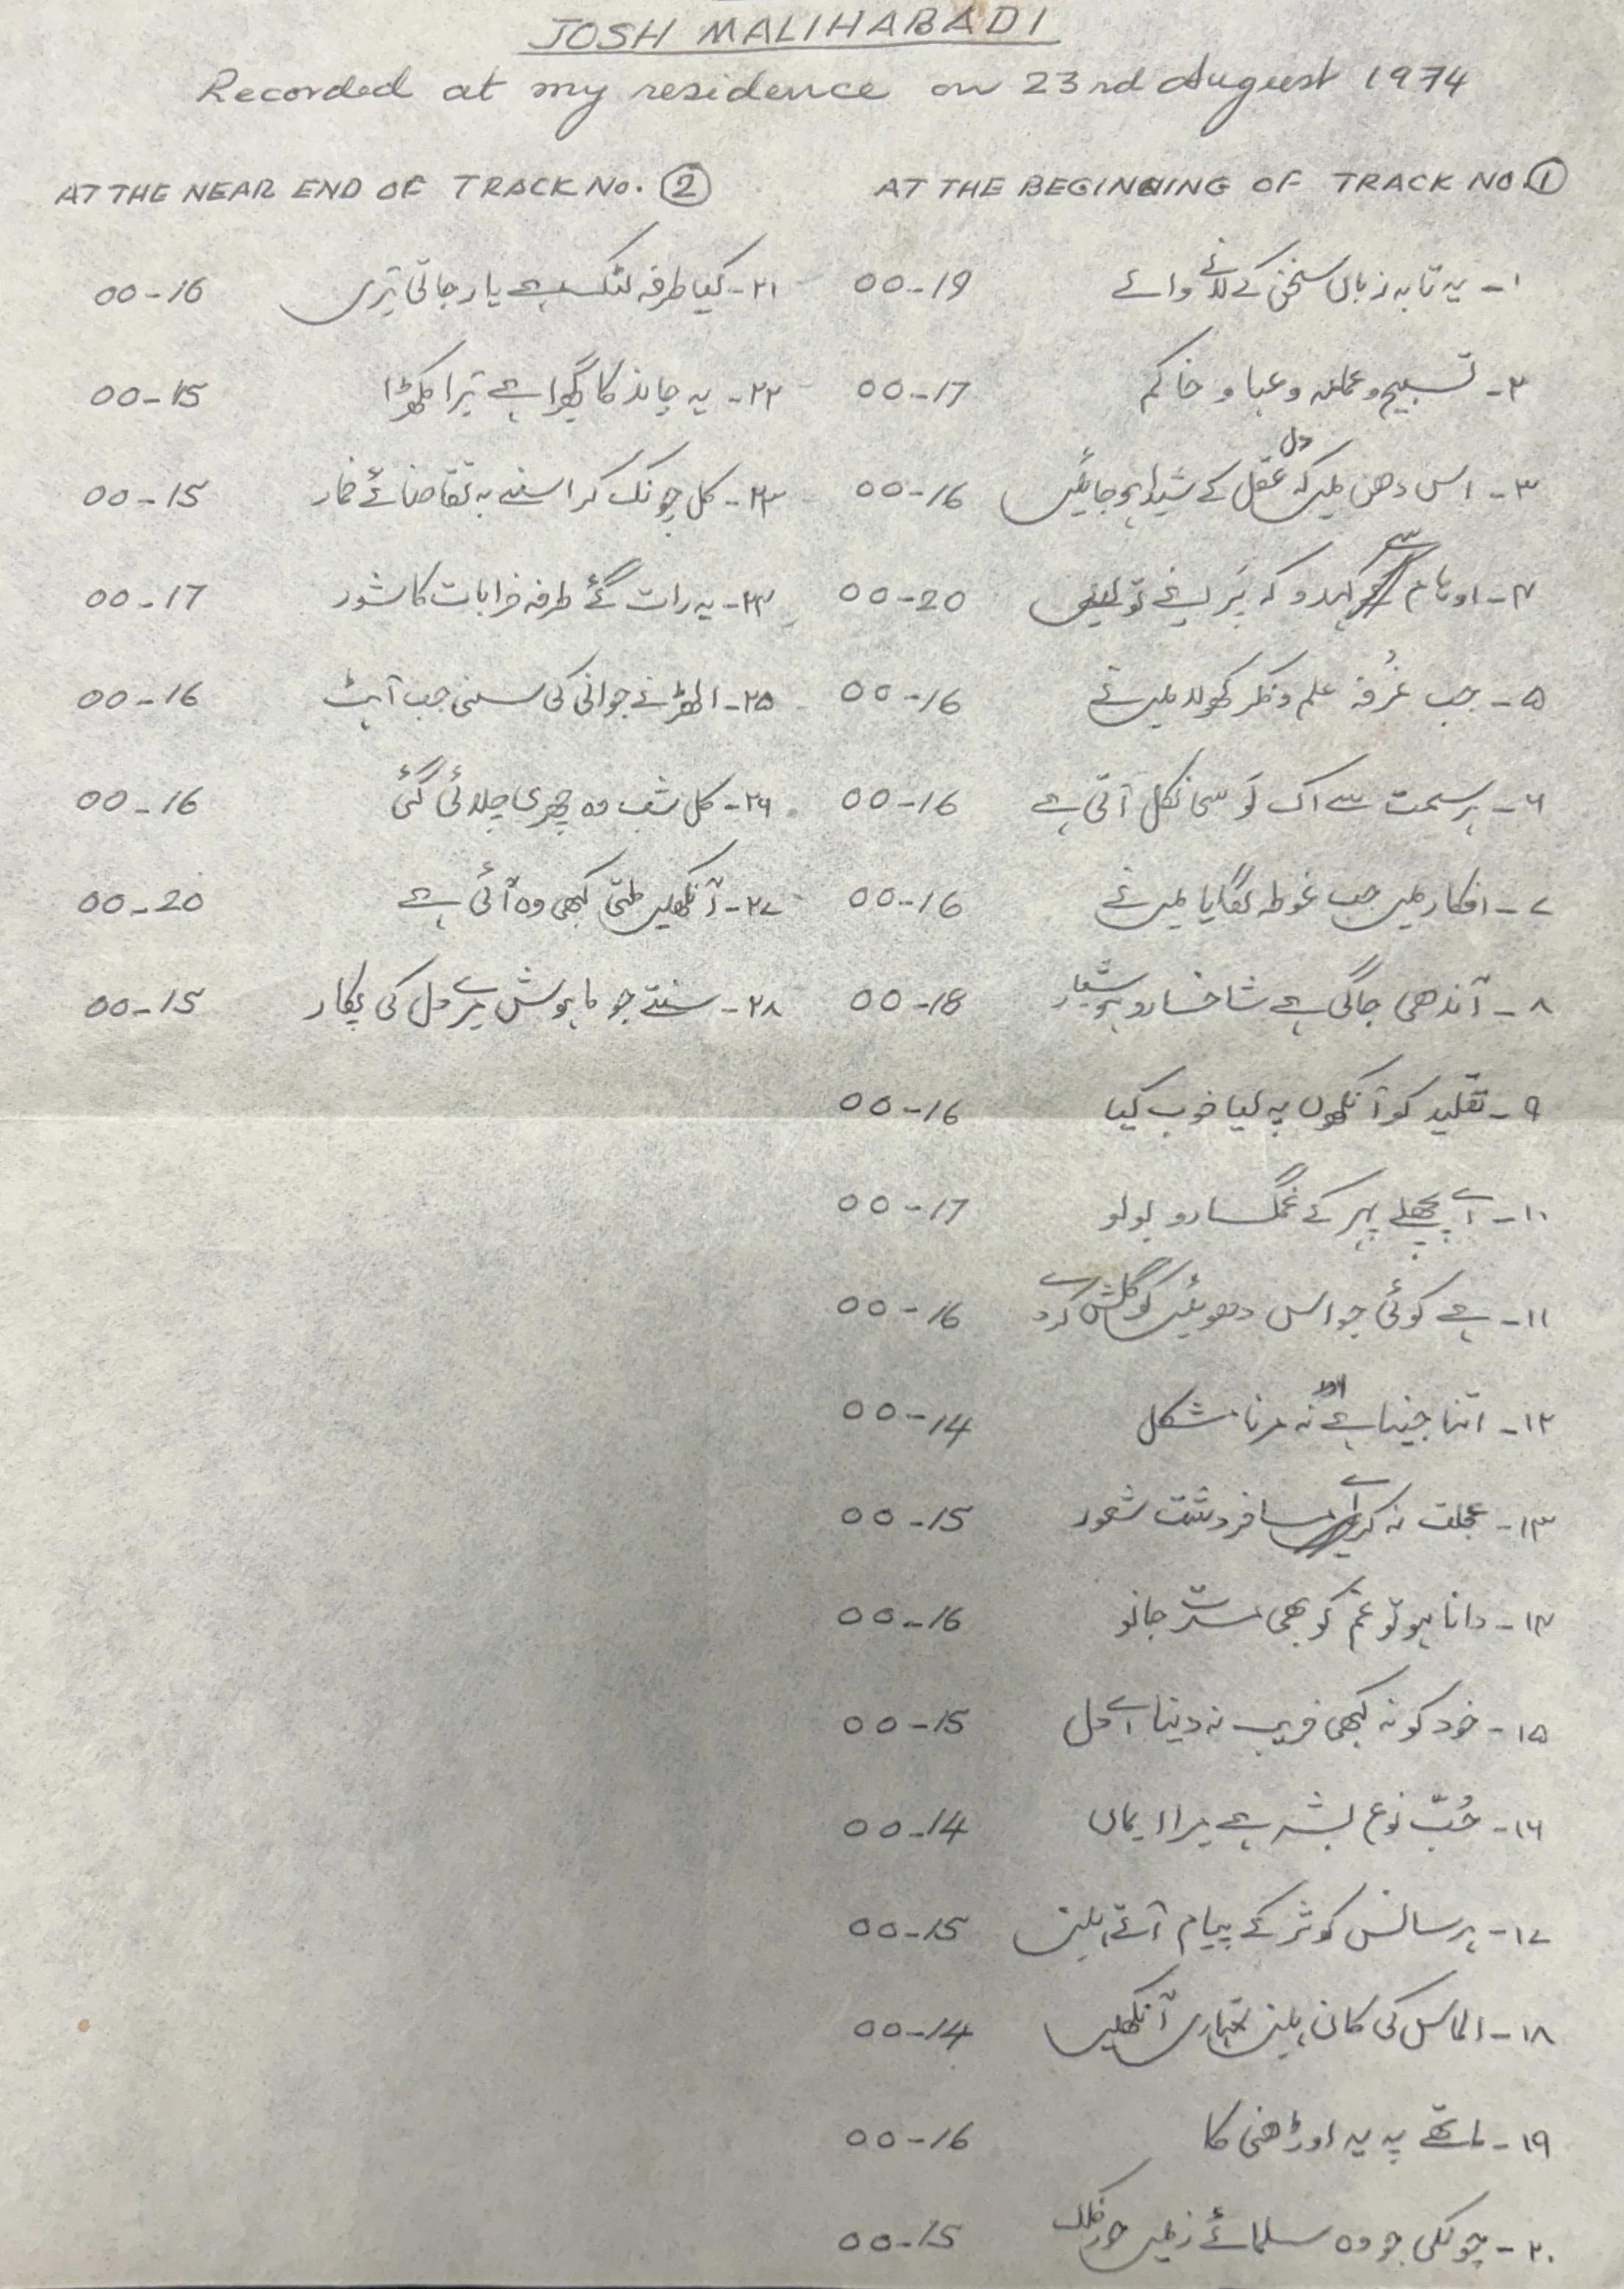 JOSH MALIHABADI
Recorded at my residence on 23rd August 1974
AT THE BEGINNING OF TRACK NO. ①
۱- یہ تا بہ زباں سخن کے لانے والے 00-19
۲- تسبیح و عمامہ و عبا و خاکم 00-17
۳- اس دھن میں کہ دل عقل کے شیدا ہو جائیں 00-16
۴- اوہام سے کہدو کہ پَر اپنے تولیں 00-20
۵- جب غُرفۂ علم و فکر کھولا میں نے 00-16
۶- ہر سمت سے اک لَو سی نکل آتی ہے 00-16
۷- افکار میں جب غوطہ لگایا میں نے 00-16
۸- آندھی جاگی ہے شاخسارو ہشیار 00-18
۹- تقلید کو آنکھوں پہ لیا خوب کیا 00-16
۱۰- اے پچھلے پہر کے غمگسارو بولو 00-17
۱۱- ہے کوئی جو اس دھوئیں کو گلشن کردے 00-16
۱۲- اتنا جینا ہے اور نہ مرنا مشکل 00-14
۱۳- عجلت نہ کر اے مسافر دشت شعور 00-15
۱۴- دانا ہو تو غم کو بھی مسرّت جانو 00-16
۱۵- خود کو نہ کبھی فریب نہ دینا اے دل 00-15
۱۶- حُبِّ نوع بشر ہے میرا ایماں 00-14
۱۷- ہر سانس کوثر کے پیام آتے ہیں 00-15
۱۸- الماس کی کان ہیں تمہاری آنکھیں 00-14
۱۹- ماتھے پہ یہ اوڑھنی کا 00-16
۲۰- چونکی جو وہ سلمائے زمیں حور فلک 00-15
AT THE NEAR END OF TRACK NO. ②
۲۱- کیا طرفہ لٹک ہے یار جانی تیری 00-16
۲۲- یہ چاند کا گھیرا ہے ترا مکھڑا 00-15
۲۳- کل چونک کر اسنے بہ تقاضائے خمار 00-15
۲۴- یہ رات گئے طرفہ خرابات کا شور 00-17
۲۵- الھڑ نے جوانی کی سنی جب آہٹ 00-16
۲۶- کل شب وہ چھری چلائی گئی 00-16
۲۷- آنکھیں ملتی کبھی وہ آئی ہے 00-20
۲۸- سنتے جو ماہوش مرے دل کی پکار 00-15